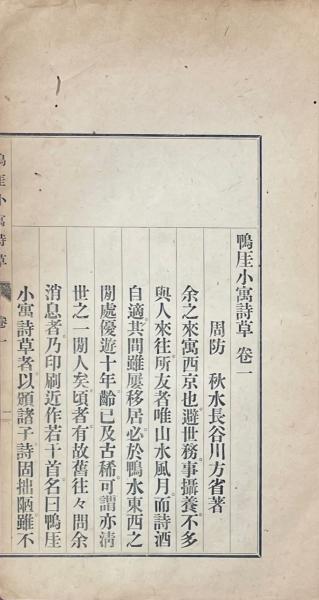 鴨厓小寓詩草 卷一
周防 秋水長谷川方省著
余之來寓西京也避世務事攝養不多
與人來往所友者唯山水風月而詩酒
自適其間雖屢移居必於鴨水東西之
閒處優遊十年齡已及古稀可謂亦淸
世之一閒人矣頃者有故舊往々問余
消息者乃印刷近作若干首名曰鴨厓
小寓詩草者以頒諸子詩固拙陋雖不
鴨厓小寓詩草 卷一 一